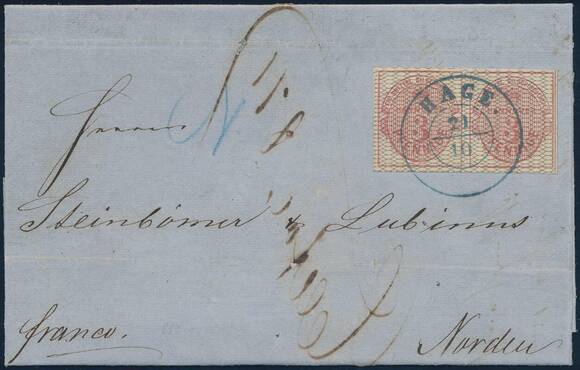 HAGE.
21
10
Herrn
N
Steinbömer & Lubinus
franco.
Norden